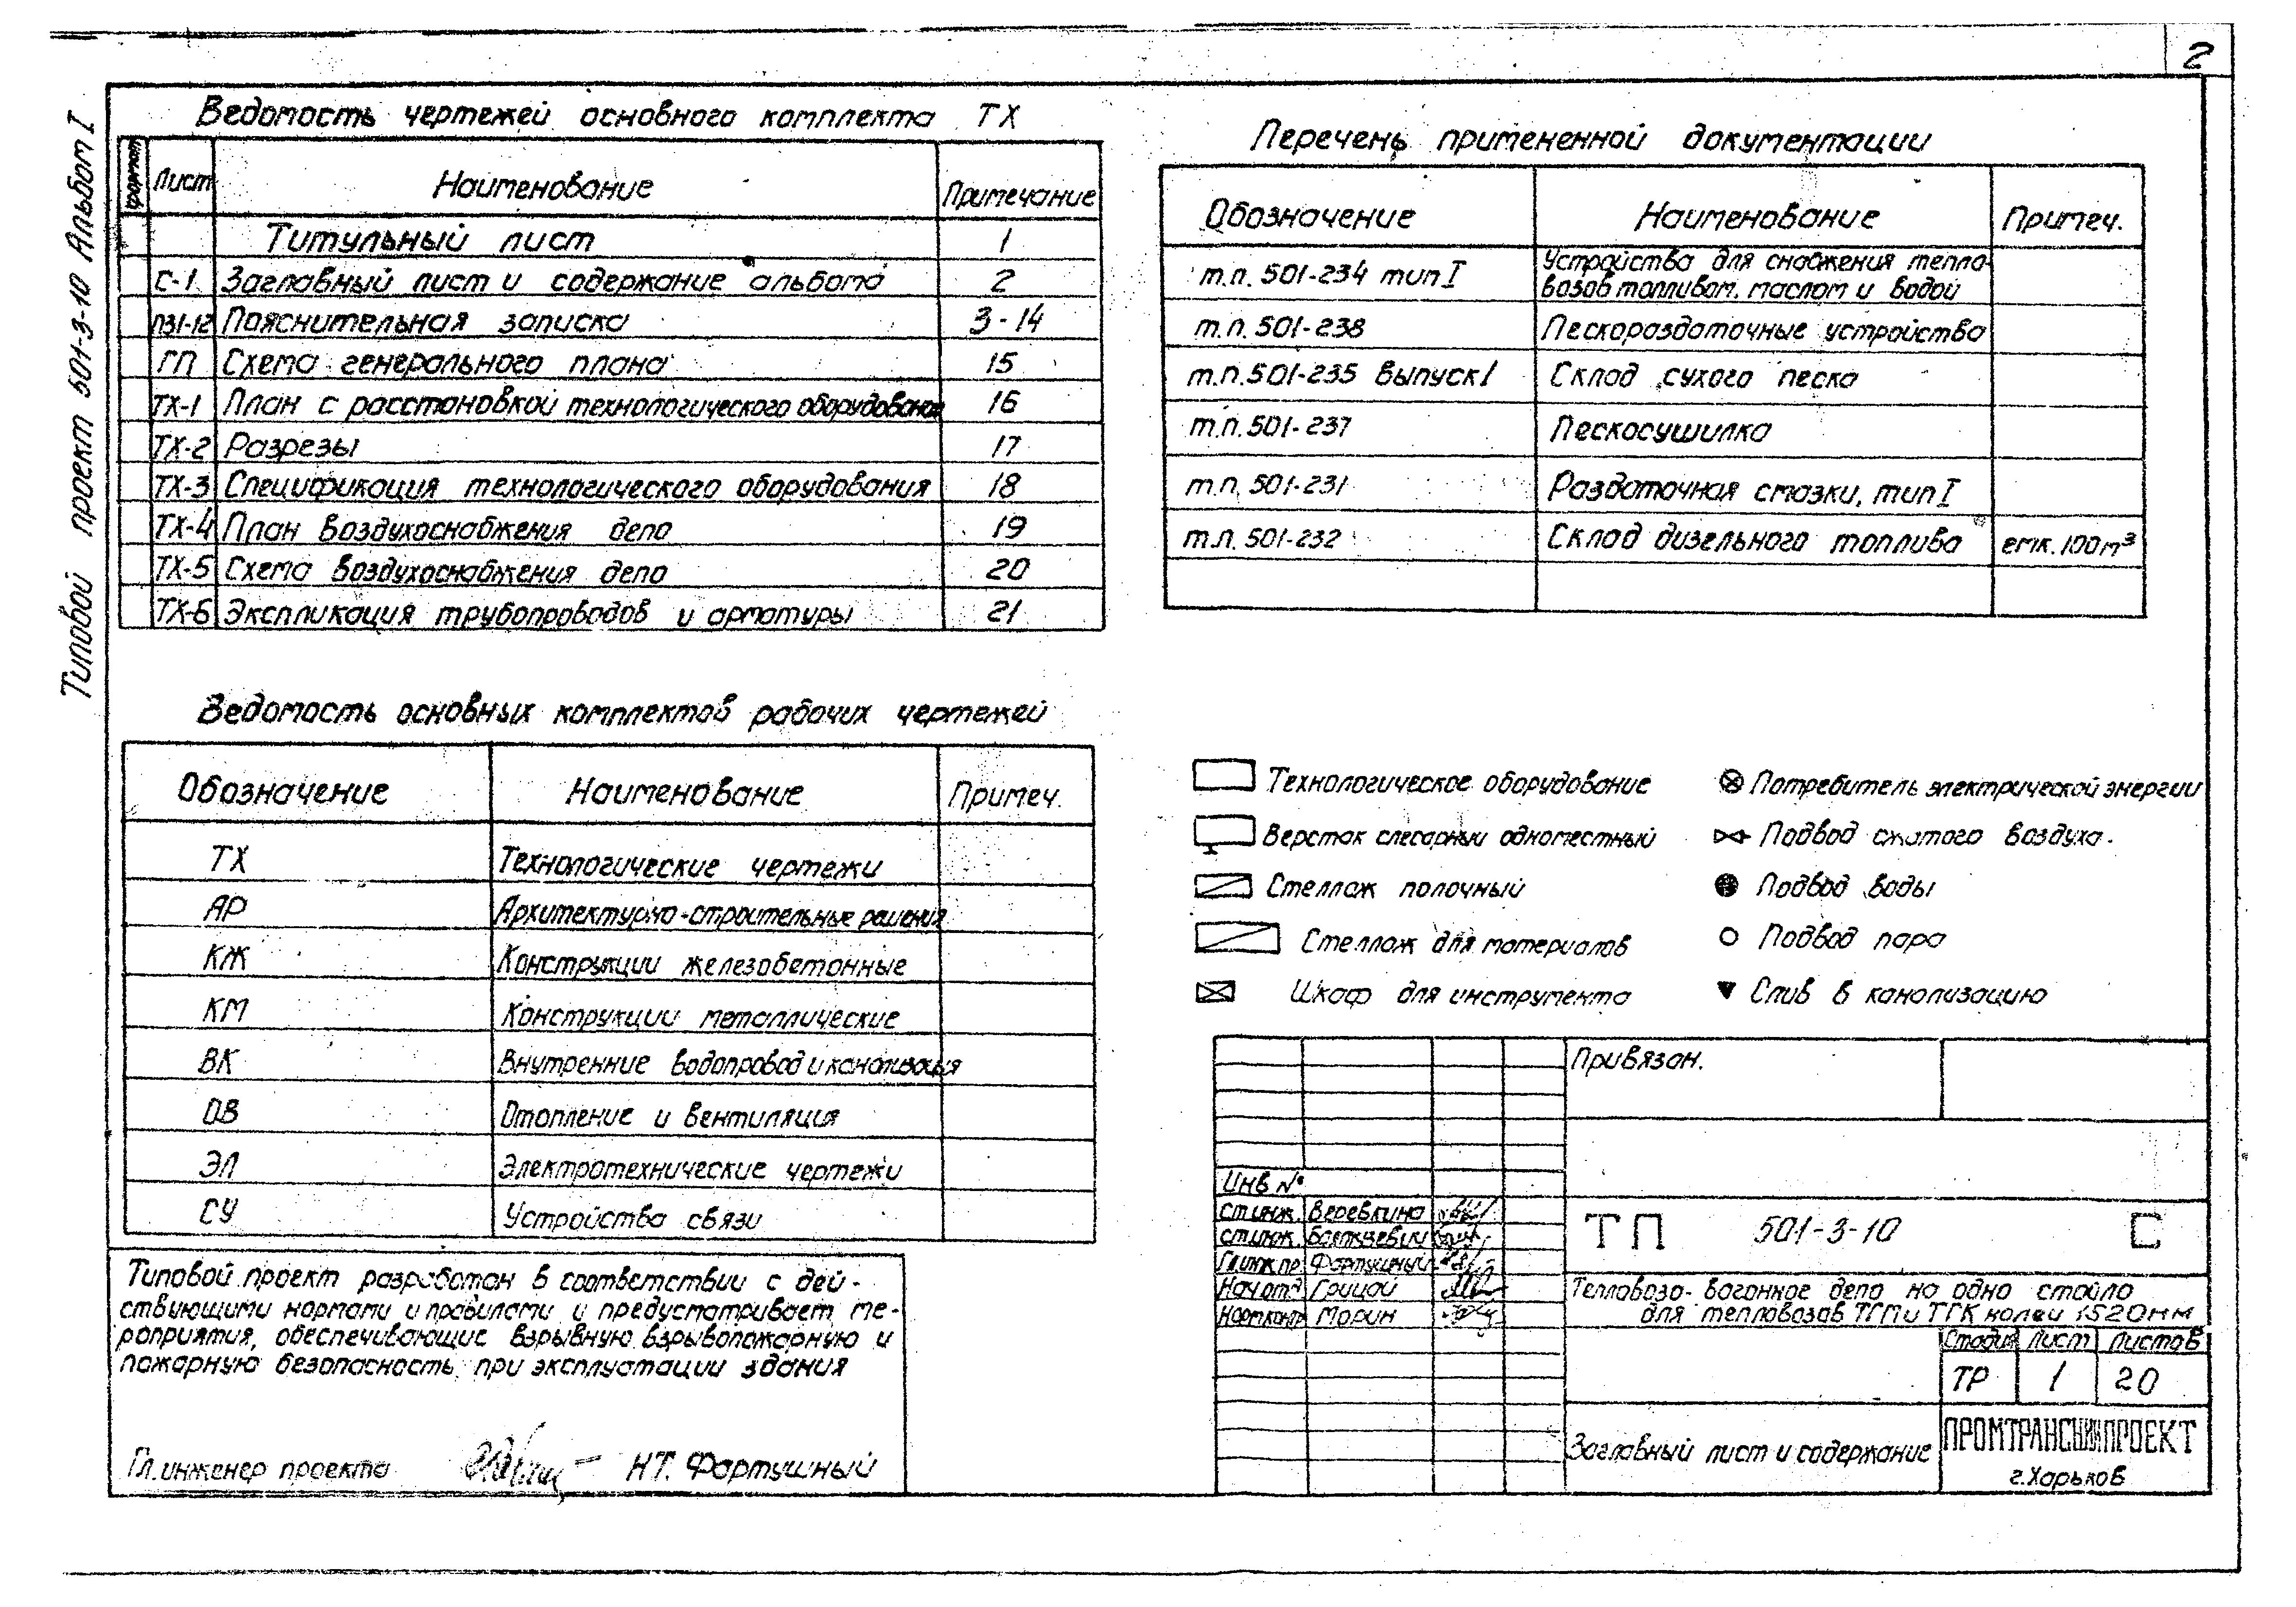 2
Типовой проект 501-3-10 Альбом I
Ведомость чертежей основного комплекта ТХ
Формат Лист Наименование Примечание
Титульный лист 1
С-1 Заглавный лист и содержание альбома 2
ПЗ1-12 Пояснительная записка 3-14
ГП Схема генерального плана 15
ТХ-1 План с расстановкой технологического оборудования 16
ТХ-2 Разрезы 17
ТХ-3 Спецификация технологического оборудования 18
ТХ-4 План воздухоснабжения депо 19
ТХ-5 Схема воздухоснабжения депо 20
ТХ-6 Экспликация трубопроводов и арматуры 21
Перечень примененной документации
Обозначение Наименование Примеч.
т.п. 501-234 тип I Устройства для снабжения тепло-
возов топливом, маслом и водой
т.п. 501-238 Пескораздаточные устройства
т.п. 501-235 выпуск I Склад сухого песка
т.п. 501-237 Пескосушилка
т.п. 501-231 Раздаточная смазки, тип I
т.п. 501-232 Склад дизельного топлива емк. 100м³
Ведомость основных комплектов рабочих чертежей
Обозначение Наименование Примеч.
ТХ Технологические чертежи
АР Архитектурно-строительные решения
КЖ Конструкции железобетонные
КМ Конструкции металлические
ВК Внутренние водопровод и канализация
ОВ Отопление и вентиляция
ЭЛ Электротехнические чертежи
СУ Устройства связи
Технологическое оборудование
Верстак слесарный одноместный
Стеллаж полочный
Стеллаж для материалов
Шкаф для инструмента
Потребитель электрической энергии
Подвод сжатого воздуха.
Подвод воды
Подвод пара
Слив в канализацию
Типовой проект разработан в соответствии с дей-
ствующими нормами и правилами и предусматривает ме-
роприятия, обеспечивающие взрывную, взрывопожарную и
пожарную безопасность при эксплуатации здания
Гл. инженер проекта Н.Т. Фартушный
Привязан.
Инв №
ст.инж. Веревкина
ст.инж.
Гл.инж.пр. Фартушный
Нач.отд Грицай
Норм.контр Морин
ТП 501-3-10 С
Тепловозо-вагонное депо на одно стойло
для тепловозов ТГМ и ТГК колеи 1520мм
Стадия Лист Листов
ТР 1 20
Заглавный лист и содержание
ПРОМТРАНСНИИПРОЕКТ
г. Харьков